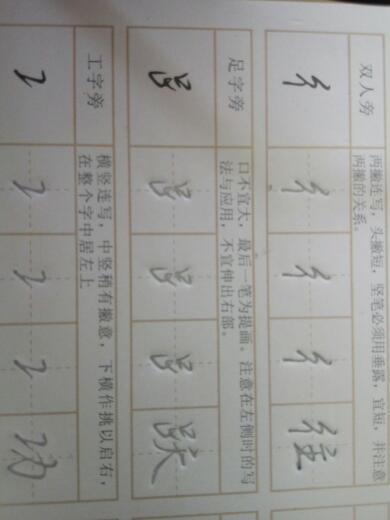 双人旁
两撇连写，头撇短，竖笔必须用垂露，宜短，并注意
两撇的关系。
彳 彳 彳 彳
足字旁
口不宜大，最后一笔为提画。注意在左侧时的写
法与应用，不宜伸出右部。
工字旁
横竖连写，中竖稍有撇意，下横作挑以启右，
在整个字中居左上
功